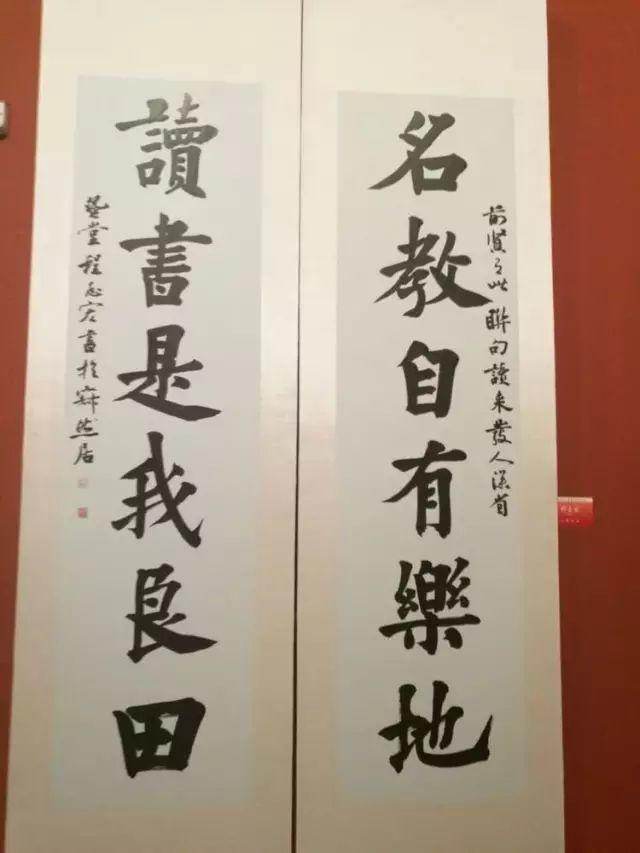 名教自有樂地
前賢之此聯句讀來發人深省
讀書是我良田
藝堂程志宏書於寂然居